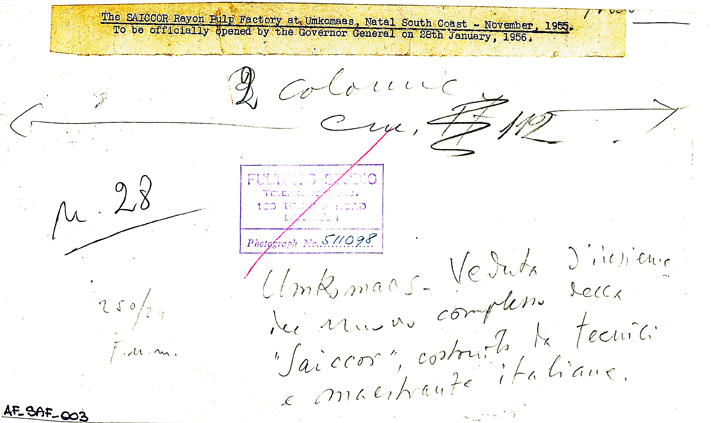 The SAICCOR Rayon Pulp Factory at Umkomaas, Natal South Coast - November, 1955.
To be officially opened by the Governor General on 28th January, 1956.
2 colonne
cm. 112
n. 28
STUDIO
ROAD
Photograph No. 511098
Umkomaas - Veduta d'insieme
del nuovo complesso della
"Saiccor", costruito da tecnici
e maestranze italiane.
250/24
F.n.m.
AF_SAF_003